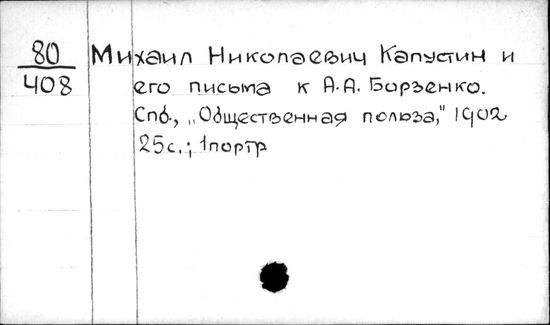 80
408
Михаил Николаевич Капустин и
его письма к А.А. Борзенко.
Спб., „Общественная польза," 1902
25с.; 1портр